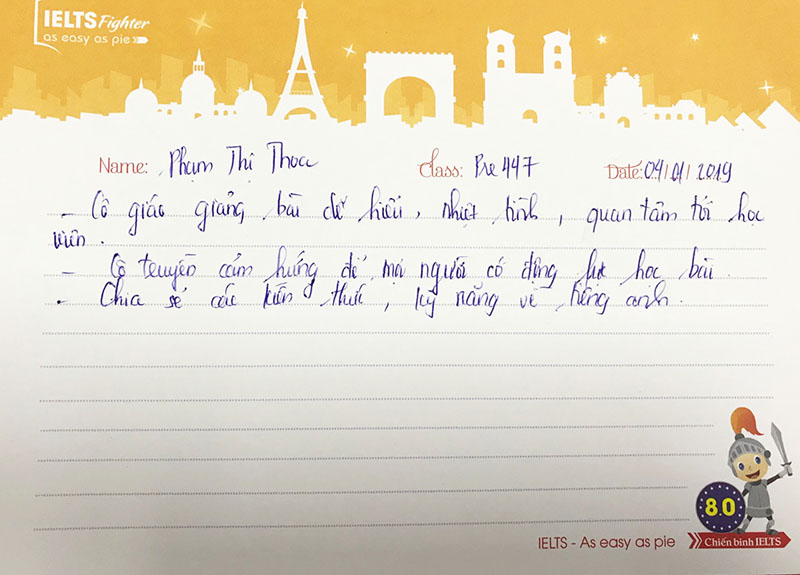 IELTS Fighter
as easy as pie
Name: Phạm Thị Thoa Class: Pre 447 Date: 04/01/2019
- Cô giáo giảng bài dễ hiểu, nhiệt tình, quan tâm tới học
viên.
- Cô truyền cảm hứng để mọi người có động lực học bài.
- Chia sẻ các kiến thức, kỹ năng về tiếng anh.
8.0
IELTS - As easy as pie
Chiến binh IELTS